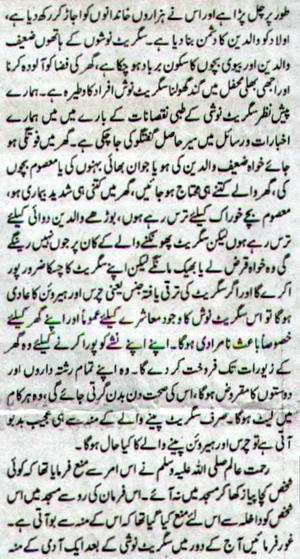 طور پر چل پڑا ہے اور اس نے ہزاروں خاندانوں کو اجاڑ کر رکھ دیا ہے،
اولاد کو والدین کا دشمن بنا دیا ہے۔ سگریٹ نوشوں کے ہاتھوں ضعیف
والدین اور بیوی بچوں کا سکون برباد ہو چکا ہے، گھر کی فضا کو آلودہ کرنا
اور اچھی بھلی محفل میں گند گھولنا سگریٹ نوش افراد کا وطیرہ ہے۔ ہمارے
پیش نظر سگریٹ نوشی کے طبی نقصانات کے بارے میں میں ہمارے
اخبارات و رسائل میں سیر حاصل گفتگو کی جا چکی ہے۔ گھر میں فوتگی ہو
جائے خواہ ضعیف والدین کی ہو یا جوان بھائی بہنوں کی یا معصوم بچوں
کی، گھر والے کتنے ہی محتاج ہو جائیں، گھر میں کتنی ہی شدید بیماری ہو،
معصوم بچے خوراک کیلئے ترس رہے ہوں، بوڑھے والدین دوائی کیلئے
ترس رہے ہوں لیکن سگریٹ پھونکنے والے کے کان پر جوں نہیں رینگے
گی وہ خواہ قرض لے یا بھیک مانگے لیکن اپنے سگریٹ کا چسکا ضرور پورا
کرے گا اور اگر سگریٹ کی ترقی یافتہ جنس یعنی چرس اور ہیروئن کا عادی
ہوگا تو اس سگریٹ نوش کا وجود معاشرے کیلئے عموماً اور اپنے گھر کیلئے
خصوصاً باعث نامرادی ہوگا۔ اپنے اپنے نشے کو پورا کرنے کیلئے وہ گھر
کے زیورات تک فروخت کر دے گا۔ وہ اپنے تمام رشتہ داروں اور
دوستوں کا مقروض ہوگا، اس کی صحت دن بدن گرتی جائے گی، وہ ہر کام
میں لیٹ ہوگا۔ صرف سگریٹ پینے والے کے منہ سے ہی عجیب بدبو
آتی ہے تو چرس اور ہیروئن پینے والے کا کیا حال ہوگا۔
رحمت عالم صلی اللہ علیہ وسلم نے اس امر سے منع فرمایا تھا کہ کوئی
شخص کچا پیاز کھا کر مسجد میں نہ آئے۔ اس فرمان کی رو سے مسجد میں اس
شخص کو داخلہ سے اس لئے منع کیا گیا تھا کہ اس کے منہ سے بو آتی ہے۔
غور فرمائیں آج کے دور میں سگریٹ نوشی کے بعد ایک آدمی کے منہ